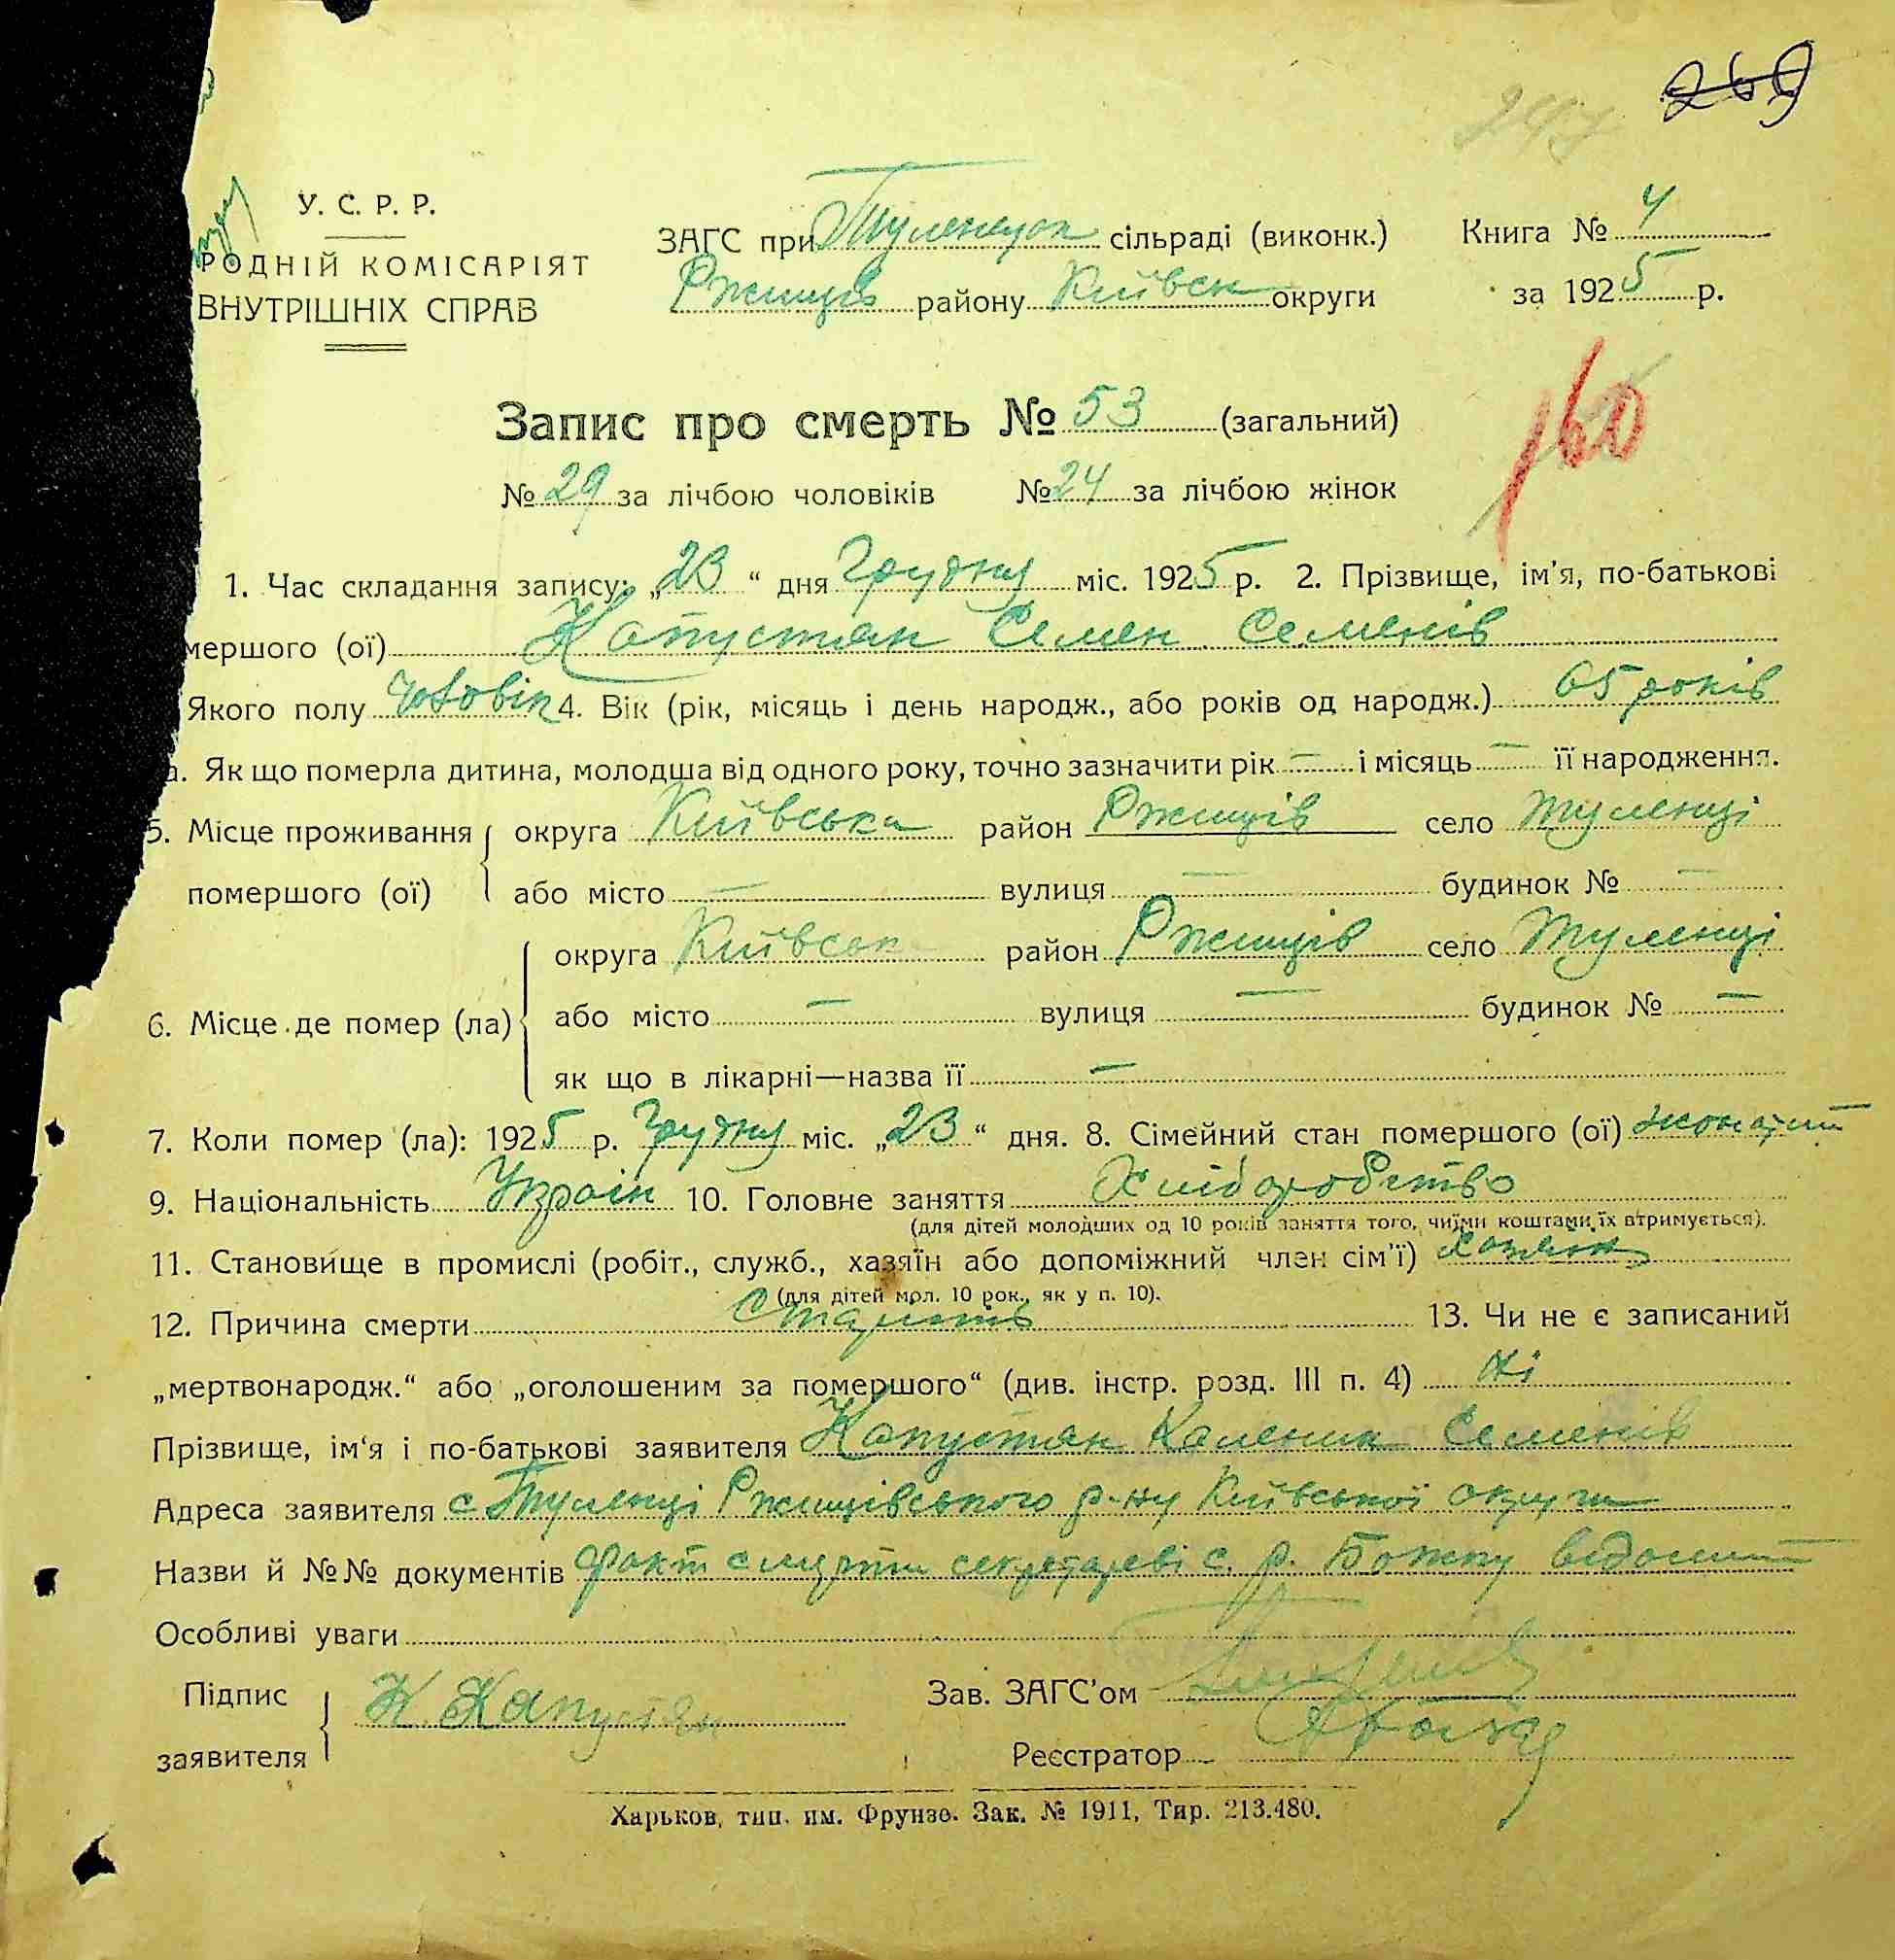 269
247
У. С. Р. Р.
РОДНІЙ КОМІСАРІЯТ
ВНУТРІШНІХ СПРАВ
ЗАГС при Туленецок сільраді (виконк.)
Ржищів району Київськ округи
Книга № 4
за 1925 р.
160
Запис про смерть № 53 (загальний)
№ 29 за лічбою чоловіків № 24 за лічбою жінок
1. Час складання запису: „23“ дня Грудня міс. 1925 р. 2. Прізвище, ім'я, по-батькові
мершого (ої) Капустян Семен Семенів
Якого полу Чоловік 4. Вік (рік, місяць і день народж., або років од народж.) 65 років
а. Як що померла дитина, молодша від одного року, точно зазначити рік — і місяць — її народження.
5. Місце проживання округа Київська район Ржищів село Туленці
помершого (ої) або місто — вулиця — будинок № —
округа Київськ район Ржищів село Туленці
6. Місце де помер (ла) або місто — вулиця — будинок № —
як що в лікарні—назва її —
7. Коли помер (ла): 1925 р. Грудня міс. „23“ дня. 8. Сімейний стан помершого (ої) жонатий
9. Національність Україн 10. Головне заняття Хліборобство
(для дітей молодших од 10 років заняття того, чиїми коштами їх втримується).
11. Становище в промислі (робіт., служб., хазяїн або допоміжний член сім'ї) Хозяїн
(для дітей мол. 10 рок., як у п. 10).
12. Причина смерти Старість 13. Чи не є записаний
„мертвонародж.“ або „оголошеним за помершого“ (див. інстр. розд. III п. 4) Ні
Прізвище, ім'я і по-батькові заявителя Капустян Каленик Семенів
Адреса заявителя с Туленці Ржищівського р-ну Київської округи
Назви й №№ документів факт смерти секретареві с. р. Божку відомий
Особливі уваги
Підпис заявителя К. Капустян
Зав. ЗАГС'ом
Реєстратор
Харьков, тип. им. Фрунзе. Зак. № 1911, Тир. 213.480.